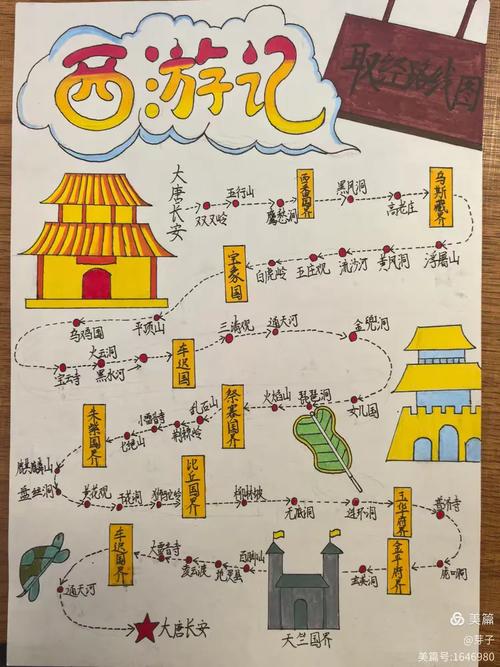 西游记
取经路线图
大唐长安
双叉岭
五行山
鹰愁涧
西番国界
黑风洞
高老庄
乌斯藏界
浮屠山
黄风洞
流沙河
五庄观
白虎岭
宝象国
平顶山
乌鸡国
宝云寺
火云洞
黑水河
车迟国
三清观
通天河
金兜洞
女儿国
琵琶洞
火焰山
祭赛国界
乱石山
荆棘岭
小雷音寺
七绝山
朱紫国界
麒麟山
盘丝洞
黄花观
狮驼岭
比丘国界
柳林坡
无底洞
连环洞
玉华府界
虎口洞
金平府界
玄英洞
天竺国界
百脚山
地灵县
凌云渡
大雷音寺
车迟国界
通天河
大唐长安
美篇
@芽子
美篇号:1646980